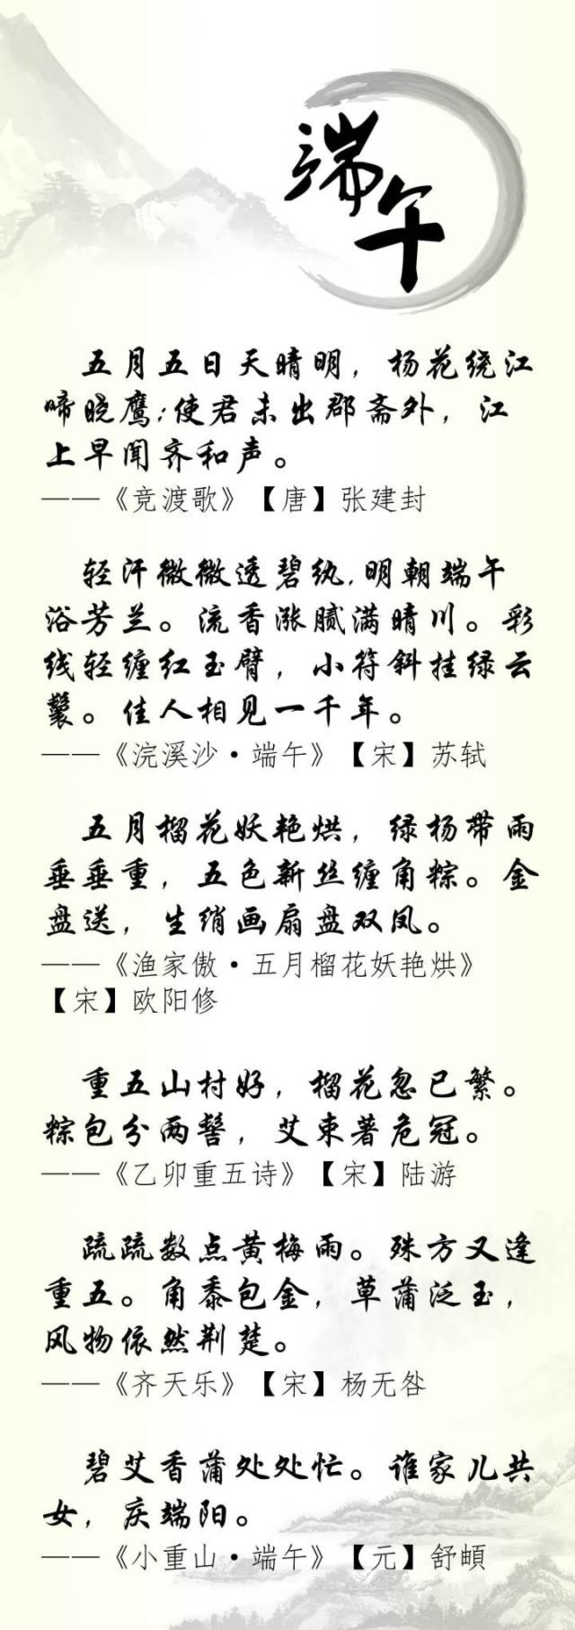 端午
五月五日天晴明，杨花绕江
啼晓鹰;使君未出郡斋外，江
上早闻齐和声。
——《竞渡歌》【唐】张建封
轻汗微微透碧纨,明朝端午
浴芳兰。流香涨腻满晴川。彩
线轻缠红玉臂，小符斜挂绿云
鬟。佳人相见一千年。
——《浣溪沙·端午》【宋】苏轼
五月榴花妖艳烘，绿杨带雨
垂垂重，五色新丝缠角粽。金
盘送，生绡画扇盘双凤。
——《渔家傲·五月榴花妖艳烘》
【宋】欧阳修
重五山村好，榴花忽已繁。
粽包分两髻，艾束著危冠。
——《乙卯重五诗》【宋】陆游
疏疏数点黄梅雨。殊方又逢
重五。角黍包金，草蒲泛玉，
风物依然荆楚。
——《齐天乐》【宋】杨无咎
碧艾香蒲处处忙。谁家儿共
女，庆端阳。
——《小重山·端午》【元】舒頔